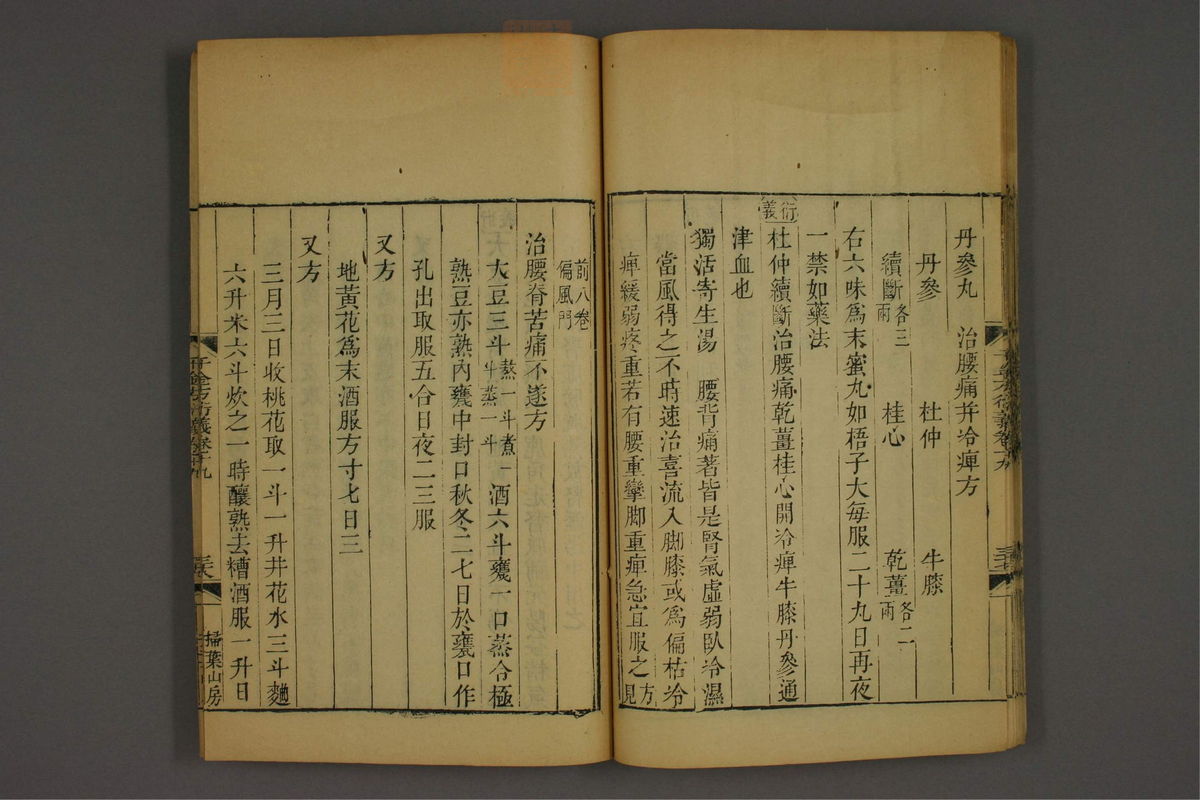 丹參丸　治腰痛并冷痺方
丹參　杜仲　牛膝
續斷各三兩　桂心　乾薑各二兩
右六味爲末蜜丸如梧子大每服二十丸日再夜
一禁如藥法
衍義
杜仲續斷治腰痛乾薑桂心開冷痺牛膝丹參通
津血也
獨活寄生湯　腰背痛著皆是腎氣虛弱臥冷濕
當風得之不時速治喜流入脚膝或爲偏枯冷
痺緩弱疼重若有腰重攣脚重痺急宜服之方見
前八卷偏風門
治腰脊苦痛不遂方
大豆三斗熬一斗煮一斗蒸一斗酒六斗甕一口蒸合極
熟豆亦熟內甕中封口秋冬二七日於甕口作
孔出取服五合日夜二三服
又方
地黃花爲末酒服方寸七日三
又方
三月三日收桃花取一斗一升井花水三斗麯
六升米六斗炊之一時釀熟去糟酒服一升日
千金方衍義卷十九
掃葉山房